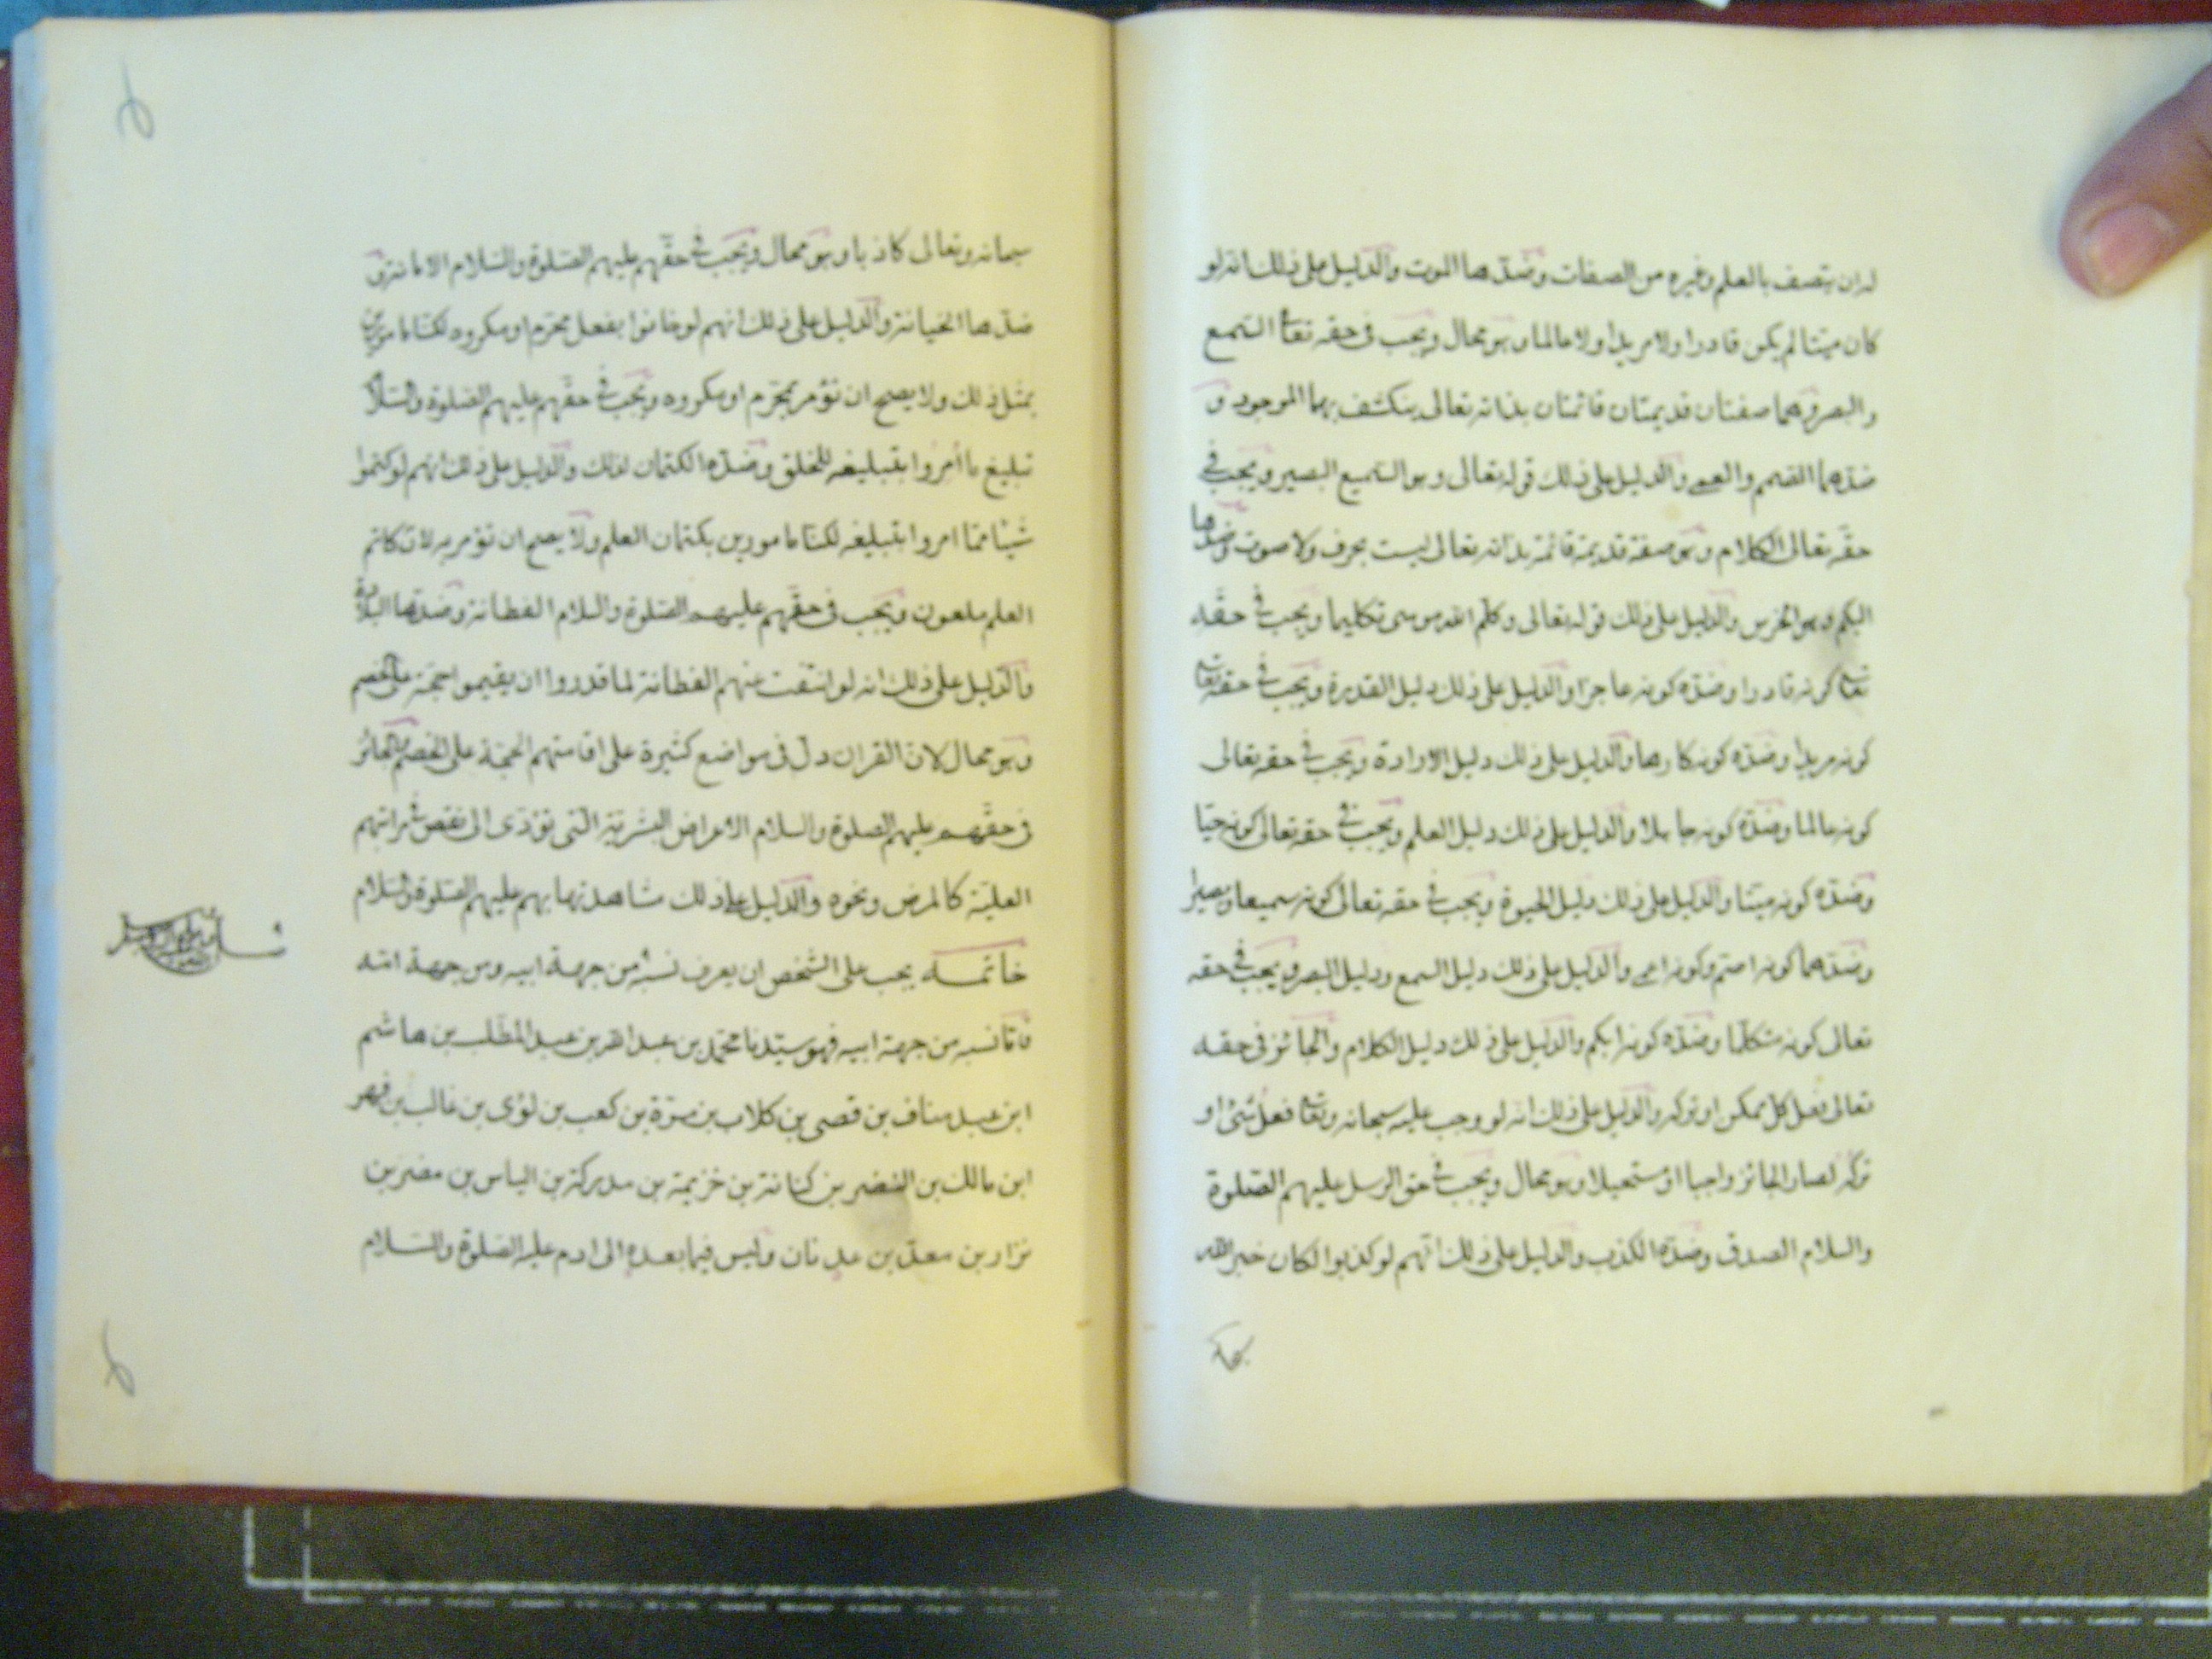 له ان يتصف بالعلم وغيره من الصفات وضدّها الموت والدليل على ذلك انه لو
كان ميتا لم يكن قادرا ولا مريدا ولا عالما وهو محال ويجب فى حقه تعا السّمع
والبصر وهما صفتان قديمتان قائمتان بذاته تعالى ينكشف بهما الموجود و
ضدّهما الصّمم والعمى والدليل على ذلك قوله تعالى وهو السّميع البصير ويجب فى
حقّه تعالى الكلام وهو صفة قديمة قائمة بذاته تعالى ليست بحرف ولا صوت وضدها
البكم وهو الخرس والدليل على ذلك قوله تعالى وكلّم الله موسى تكليما ويجب فى حقّه
تعا كونه قادرا وضدّه كونه عاجزا والدليل على ذلك دليل القدرة ويجب فى حقه تعا
كونه مريدا وضدّه كونه كارها والدليل على ذلك دليل الارادة ويجب فى حقه تعالى
كونه عالما وضدّه كونه جاهلا والدليل على ذلك دليل العلم ويجب فى حقه تعالى كونه حيّا
وضدّه كونه ميّتا والدليل على ذلك دليل الحيوة ويجب فى حقه تعالى كونه سميعا وبصيرا
وضدّهما كونه اصمّ وكونه اعمى والدليل على ذلك دليل السمع ودليل البصر ويجب فى حقه
تعالى كونه متكلّما وضدّه كونه ابكم والدليل على ذلك دليل الكلام والجائز فى حقه
تعالى فعل كل ممكن او تركه والدليل على ذلك انه لو وجب عليه سبحانه وتعا فعل شئ او
تركه لصار الجائز واجبا او مستحيلا وهو محال ويجب فى حق الرسل عليهم الصّلوة
والسلام الصدق وضدّه الكذب والدليل على ذلك انّهم لو كذبوا لكان خبر الله
سبحانه وتعالى كاذبا وهو محال ويجب فى حقّهم عليهم الصّلوة والسّلام الامانة و
ضدّها الخيانة والدليل على ذلك انهم لو خانوا بفعل محرّم او مكروه لكنّا مامورين
بمثل ذلك ولا يصح ان نؤمر بمحرّم او مكروه ويجب فى حقّهم عليهم الصّلوة والسّلا
تبليغ ما أمروا بتبليغه للخلق وضدّه الكتمان لذلك والدليل على ذلك انهم لو كتموا
شيئا ممّا امروا بتبليغه لكنّا مامورين بكتمان العلم ولا يصح ان نؤمر به لانّ كاتم
العلم ملعون ويجب فى حقّهم عليهم الصّلوة والسلام الفطانة وضدّها البلادة
والدليل على ذلك انه لو انتفت عنهم الفطانة لما قدروا ان يقيموا حجّة على الخصم
وهو محال لانّ القران دلّ فى مواضع كثيرة على اقامتهم الحجّة على الخصم والجائز
فى حقّهم عليهم الصلوة والسلام الاعراض البشريّة الّتى لا تؤدّى الى نقص فى مراتبهم
العليّة كالمرض ونحوه والدليل على ذلك مشاهدتها بهم عليهم الصّلوة والسّلام
خاتمة يجب على الشّخص ان يعرف نسبه من جهة ابيه ومن جهة امّه
فامّا نسبه من جهة ابيه فهو سيّدنا محمّد بن عبد الله بن عبد المطّلب بن هاشم
ابن عبد مناف بن قصى بن كلاب بن مرّة بن كعب بن لؤى بن غالب بن فهر
ابن مالك بن النّضر بن كنانة بن خزيمة بن مدركة بن الياس بن مضر بن
نزار بن معدّ بن عدنان وليس فيما بعده الى ادم عليه الصّلوة والسّلام